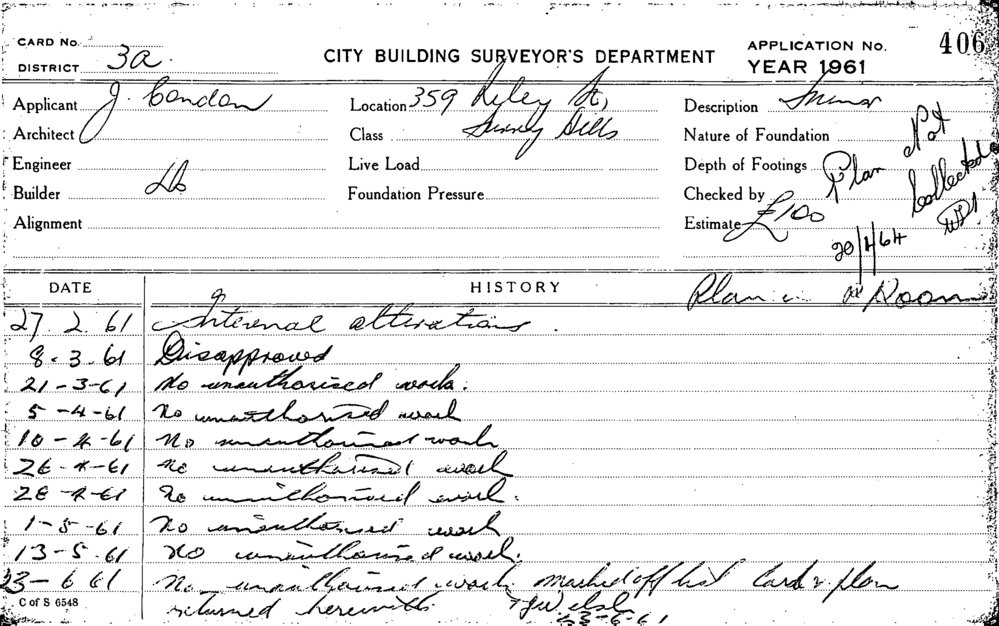 CARD No.
DISTRICT 3a.
CITY BUILDING SURVEYOR'S DEPARTMENT
APPLICATION No. 406
YEAR 1961
Applicant J. Condon
Location 359 Riley St,
Description Minor
Architect
Class Surrey Hills
Nature of Foundation
Engineer
Live Load
Depth of Footings
Builder Do
Foundation Pressure
Checked by
Alignment
Estimate £100
Plan Not
Collected
20/4/64
DATE
HISTORY
Plan Room
27. 2. 61 Internal alterations.
8. 3. 61 Disapproved
21-3-61 No unauthorised work.
5-4-61 No unauthorised work
10-4-61 No unauthorised work
26-4-61 No unauthorised work
28-4-61 No unauthorised work.
1-5-61 No unauthorised work
13-5.61 No unauthorised work.
23-6 61 No unauthorised work. marked off list Card & plan
returned herewith
23-6-61
C of S 6548